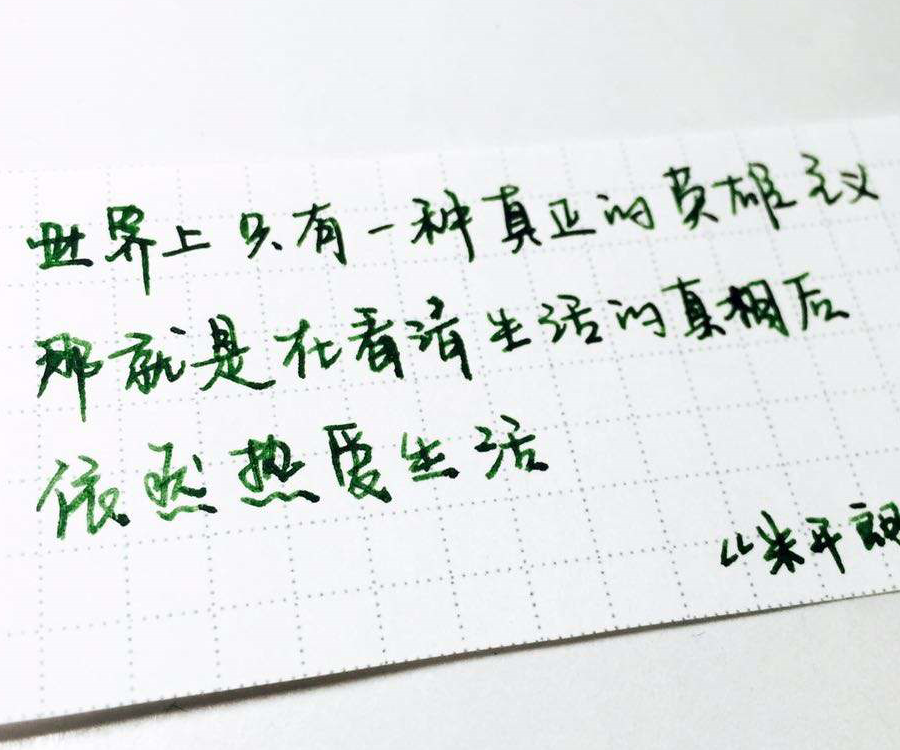 世界上只有一种真正的英雄主义
那就是在看清生活的真相后
依然热爱生活
米开朗